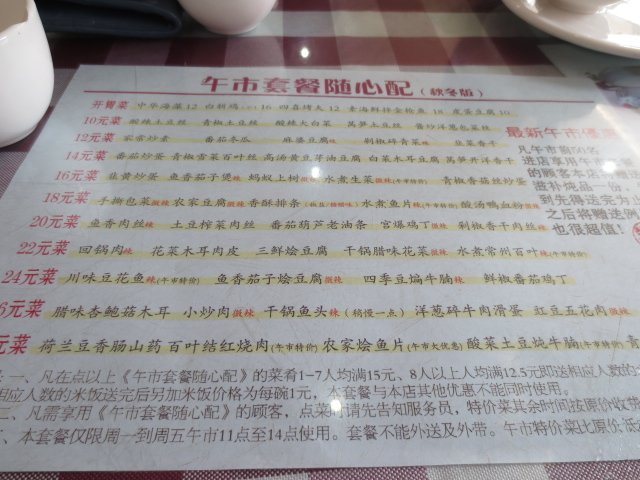 午市套餐随心配（秋冬版）
开胃菜 中华海藻12 白斩鸡 16 四喜烤夫12 素海鲜拌金枪鱼 18 皮蛋豆腐10
10元菜 酸辣土豆丝 青椒土豆丝 酸辣大白菜 莴笋土豆丝 酱炒洋葱包菜丝
12元菜 家常炒素 番茄冬瓜 麻婆豆腐辣 剁椒碎青菜辣 韭菜香干
14元菜 番茄炒蛋 青椒雪菜百叶丝 高汤黄豆芽油豆腐 白菜木耳豆腐 莴笋开洋香干
16元菜 韭黄炒蛋 鱼香茄子煲辣 蚂蚁上树微辣 水煮生菜微辣(午市特价) 青椒香菇丝炒蛋
18元菜 手撕包菜微辣 农家豆腐微辣 香酥排条 水煮鱼片辣(午市特价) 酸汤鸭血粉微辣
20元菜 鱼香肉丝辣 土豆榨菜肉丝 番茄葫芦老油条 宫爆鸡丁微辣 剁椒香干肉丝辣
22元菜 回锅肉辣 花菜木耳肉皮 三鲜烩豆腐 干锅腊味花菜微辣 水煮常州百叶辣(午市特价)
24元菜 川味豆花鱼辣(午市特价) 鱼香茄子烩豆腐微辣 四季豆煸牛腩辣 鲜椒番茄鸡丁
6元菜 腊味杏鲍菇木耳 小炒肉微辣 干锅鱼头辣（稍慢一点） 洋葱碎牛肉滑蛋 豇豆五花肉微辣
元菜 荷兰豆香肠山药 百叶结红烧肉(午市特价) 农家烩鱼片(午市大优惠) 酸菜土豆炖牛腩(午市特价) 青
最新午市优惠
凡午市前50名
进店享用午市套餐
的顾客本店将赠送
滋补炖品一份，
到先得送完为止
之后将赠送
也很超值！
：一、凡在点以上《午市套餐随心配》的菜肴1-7人均满15元、8人以上人均满12.5元即送相应人数的
相应人数的米饭送完后另加米饭价格为每碗1元，本套餐与本店其他优惠不能同时使用。
二、凡需享用《午市套餐随心配》的顾客，点菜时请先告知服务员，特价菜其余时间按原价收费
、本套餐仅限周一到周五午市11点至14点使用。套餐不能外送及外带。午市特价菜比原价低